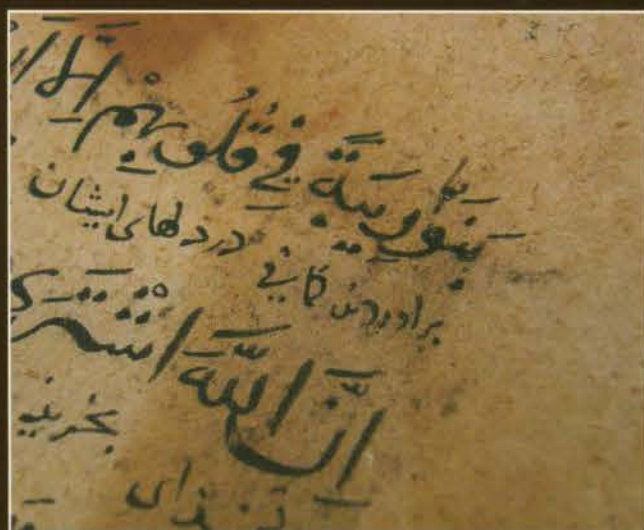 بَنَوا رِيبَةً فِي قُلُوبِهِمْ اِلَّا
براوردند كمانى در دلهاى ايشان
اِنَّ اللَّهَ اشْتَرَى
خداى بخريد